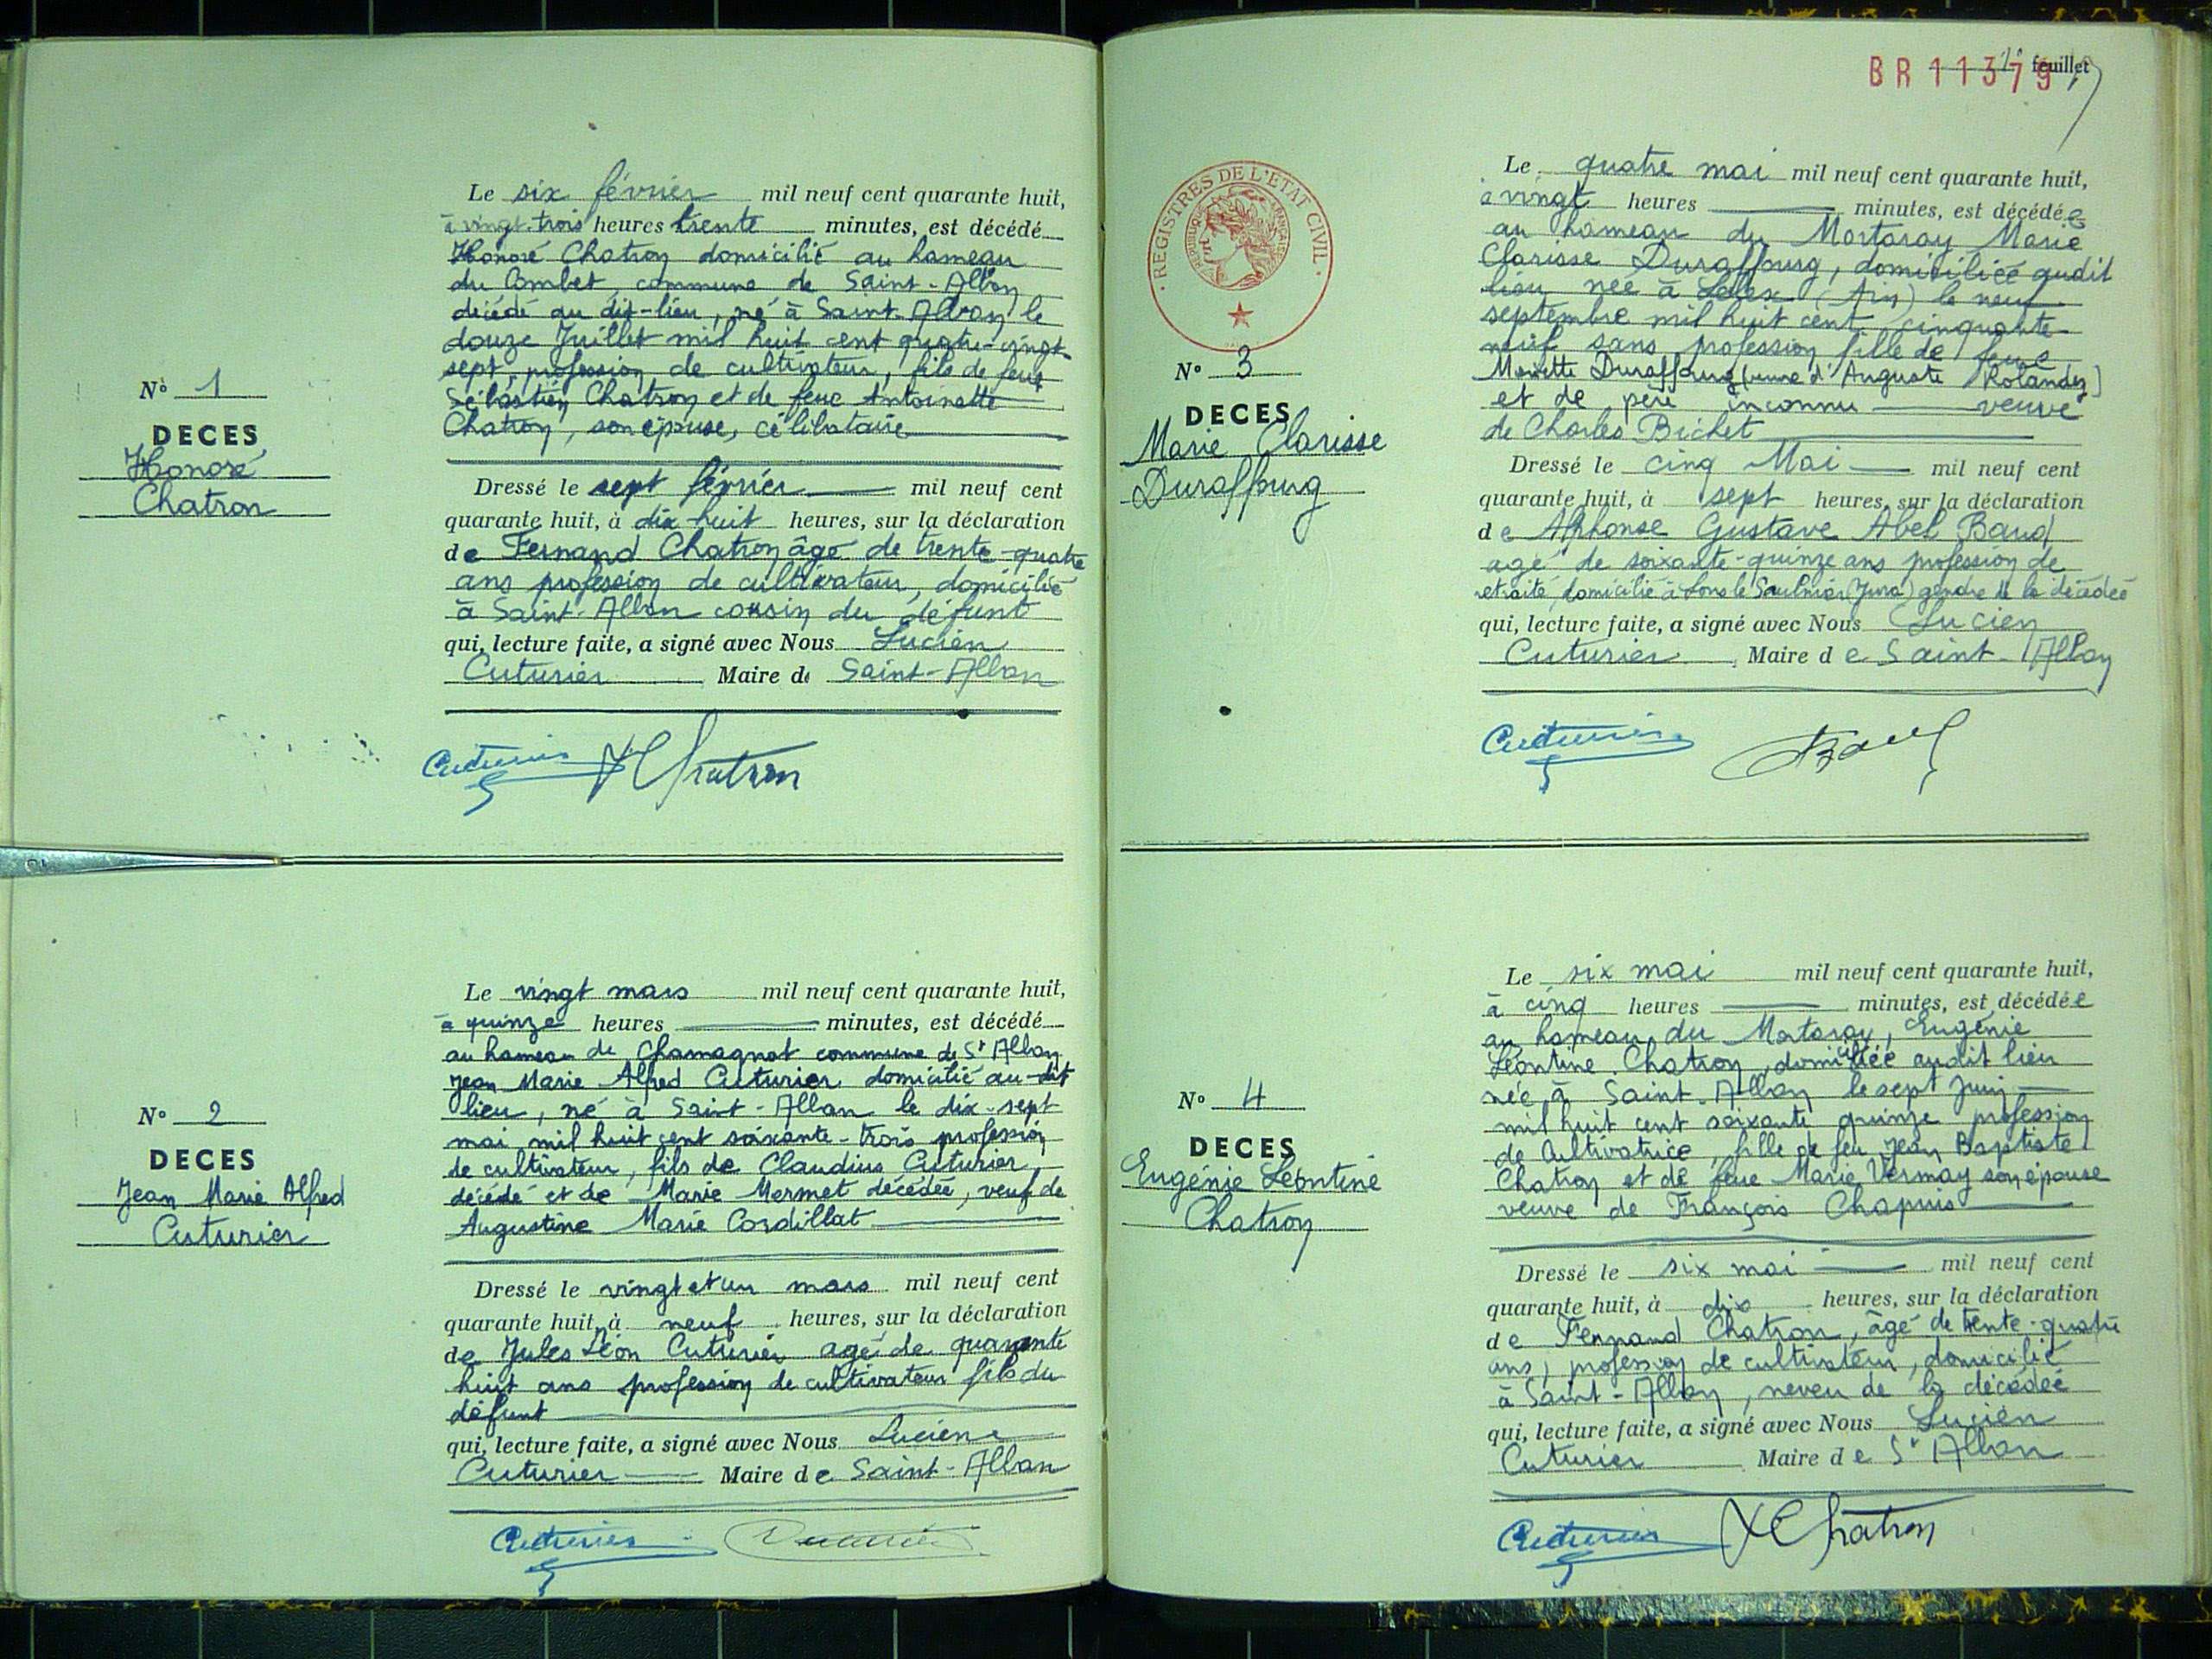 Nº 1
DECES
Honoré
Chatron
Le six février mil neuf cent quarante huit,
à vingt-trois heures trente minutes, est décédé
Honoré Chatron domicilié au hameau
du Combet, commune de Saint-Alban
décédé au dit-lieu, né à Saint-Alban le
douze Juillet mil huit cent quatre-vingt-
sept, profession de cultivateur, fils de feu
Sébastien Chatron et de feue Antoinette
Chatron, son épouse, célibataire
Dressé le sept février mil neuf cent
quarante huit, à dix-huit heures, sur la déclaration
de Fernand Chatron âgé de trente-quatre
ans profession de cultivateur, domicilié
à Saint-Alban cousin du défunt
qui, lecture faite, a signé avec Nous Lucien
Cuturier Maire de Saint-Alban
Cuturier Chatron
Nº 2
DECES
Jean Marie Alfred
Cuturier
Le vingt mars mil neuf cent quarante huit,
à quinze heures minutes, est décédé
au hameau de Chamagnat commune de St Alban
Jean Marie Alfred Cuturier domicilié au-dit
lieu, né à Saint-Alban le dix-sept
mai mil huit cent soixante-trois profession
de cultivateur, fils de Claudius Cuturier,
décédé et de Marie Mermet décédée, veuf de
Augustine Marie Cordillat
Dressé le vingt et un mars mil neuf cent
quarante huit, à neuf heures, sur la déclaration
de Jules Léon Cuturier agé de quarante
huit ans profession de cultivateur fils du
défunt
qui, lecture faite, a signé avec Nous Lucien
Cuturier Maire de Saint-Alban
Cuturier Cuturier
BR 11379
feuillet
REGISTRES DE L'ETAT CIVIL
REPUBLIQUE FRANÇAISE
Nº 3
DECES
Marie Clarisse
Duraffourg
Le quatre mai mil neuf cent quarante huit,
à vingt heures minutes, est décédée
au hameau du Mortaray Marie
Clarisse Duraffourg, domiciliée audit
lieu née à Lelex (Ain) le neuf
septembre mil huit cent cinquante
neuf sans profession fille de feue
Duraffourg (veuve d'Auguste Rolandez)
et de père inconnu veuve
de Charles Bichet
Dressé le cinq Mai mil neuf cent
quarante huit, à sept heures, sur la déclaration
de Alphonse Gustave Abel Baud
agé de soixante-quinze ans profession de
retraité, domicilié à Lons le Saulnier (Jura) gendre de la décédée
qui, lecture faite, a signé avec Nous Lucien
Cuturier Maire de Saint-Alban
Cuturier Baud
Nº 4
DECES
Eugénie Léontine
Chatron
Le six mai mil neuf cent quarante huit,
à cinq heures minutes, est décédée
au hameau du Mortaray, Eugénie
Léontine Chatron, domiciliée audit lieu
née à Saint-Alban le sept Juin
mil huit cent soixante quinze profession
de Cultivatrice, fille de feu Jean Baptiste
Chatron et de feue Marie Vermay son épouse
veuve de François Chapuis
Dressé le six mai mil neuf cent
quarante huit, à dix heures, sur la déclaration
de Fernand Chatron, âgé de trente-quatre
ans, profession de cultivateur, domicilié
à Saint-Alban, neveu de la décédée
qui, lecture faite, a signé avec Nous Lucien
Cuturier Maire de St Alban
Cuturier Chatron